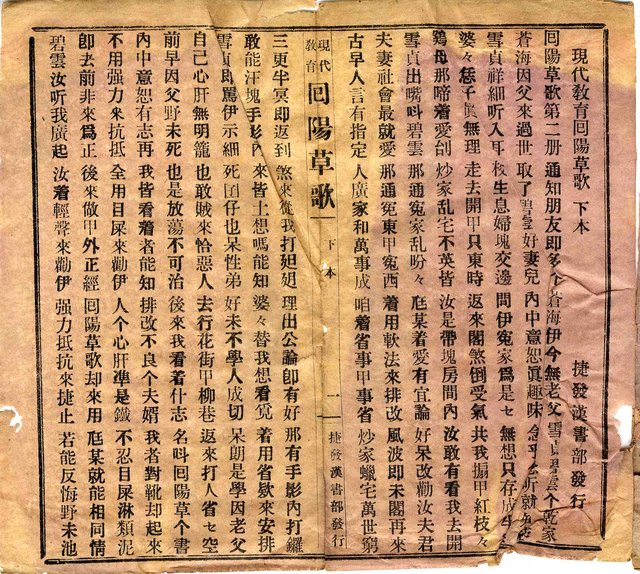 現代教育囘陽草歌 下本 捷發漢書部發行
囘陽草歌第二册 通知朋友即多个 蒼海伊今無老父 雪貞碧雲个乾家
蒼海因父來過世 取了碧雲好妻兒 內中意恕眞趣味 念乎 听就
雪貞詳細听入耳 枝生息婦塊交邊 問伊冤家為是乜 無想只存成
婆々慈子眞無理 走去開甲只東時 返來閣煞倒受氣 共我搧甲紅枝々
鷄母那啼着愛刣 炒家乱宅不英皆 汝是帶塊房間內 汝敢有看我去開
雪貞出嘴叫碧雲 那通冤家乱吩々 尫某着愛有宜論 好呆改勸汝夫君
夫妻社會最就愛 那通冤東甲冤西 着用軟法來排改 風波即未閣再來
古早人言有指定 人廣家和萬事成 咱着省事甲事省 炒家蠟宅萬世窮
現代教育 囘陽草歌 下本 一 捷發漢書部發行
三更半冥即返到 煞來從我打 理出公論卽有好 那有手影內打鑼
敢能汗塊手影內 來皆土想嗎能知 婆々替我想看覔 着用省欵來安排
雪貞即罵伊示細 死囝仔也呆性弟 好未不學人成切 呆朗是學因老父
自己心肝無明籠 也敢賊來恰惡人 去行花街甲柳巷 返來打人省乜空
前早因父野未死 也是放蕩不可治 後來我看着什志 名叫囘陽草个書
內中意恕有志再 我皆看着者能知 排改不良个夫婿 我者對靴却起來
不用强力來抗抵 全用目屎來勸伊 人个心肝準是鐵 不忍目屎淋類泥
卽去前非來為正 後來做甲外正經 囘陽草歌却來用 尫某就能相同情
碧雲汝听我廣起 汝着輕聲來勸伊 强力抵抗來捷止 若能反悔野未池